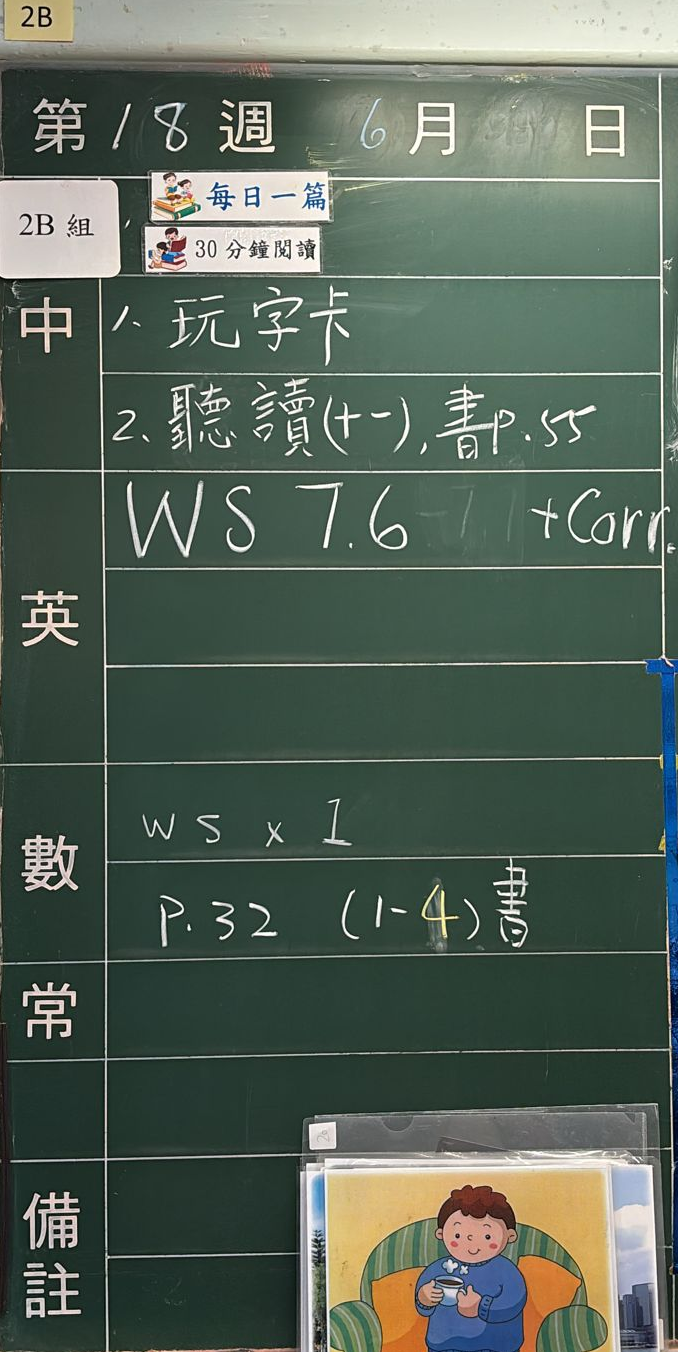 2B
第 18 週 6 月 日
2B 組
每日一篇
30 分鐘閱讀
中
1、玩字卡
2、聽讀(十一),書P.55
英
WS 7.6 +Corr.
數
WS x 1
P.32 (1-4)書
常
備註